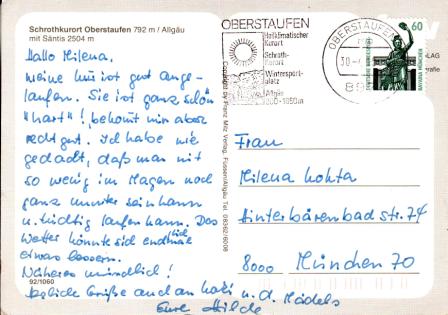 Schrothkurort Oberstaufen 792 m / Allgäu
mit Säntis 2504 m
Hallo Milena,
meine Kur ist gut ange-
laufen. Sie ist ganz schön
"hart"!, bekommt mir aber
recht gut. Ich habe nie
gedacht, daß man mit
so wenig im Magen noch
ganz munter sein kann
u. tüchtig laufen kann. Das
Wetter könnte sich endlich
etwas bessern.
Näheres mündlich!
92/1060
herzliche Grüße auch an u. d. Mädels
Eure Hilde
OBERSTAUFEN
Heilklimatischer
Kurort
Schroth-
Kurort
Wintersport-
platz
Allgäu
800-1050m
OBERSTAUFEN
30
89
60
DEUTSCHE BUNDESPOST
BAVARIA MÜNCHEN
Copyright by Franz Milz Verlag, Füssen/Allgäu Tel. 08362/6008
Frau
Milena Lohta
Hinterbärenbad str. 74
8000 München 70